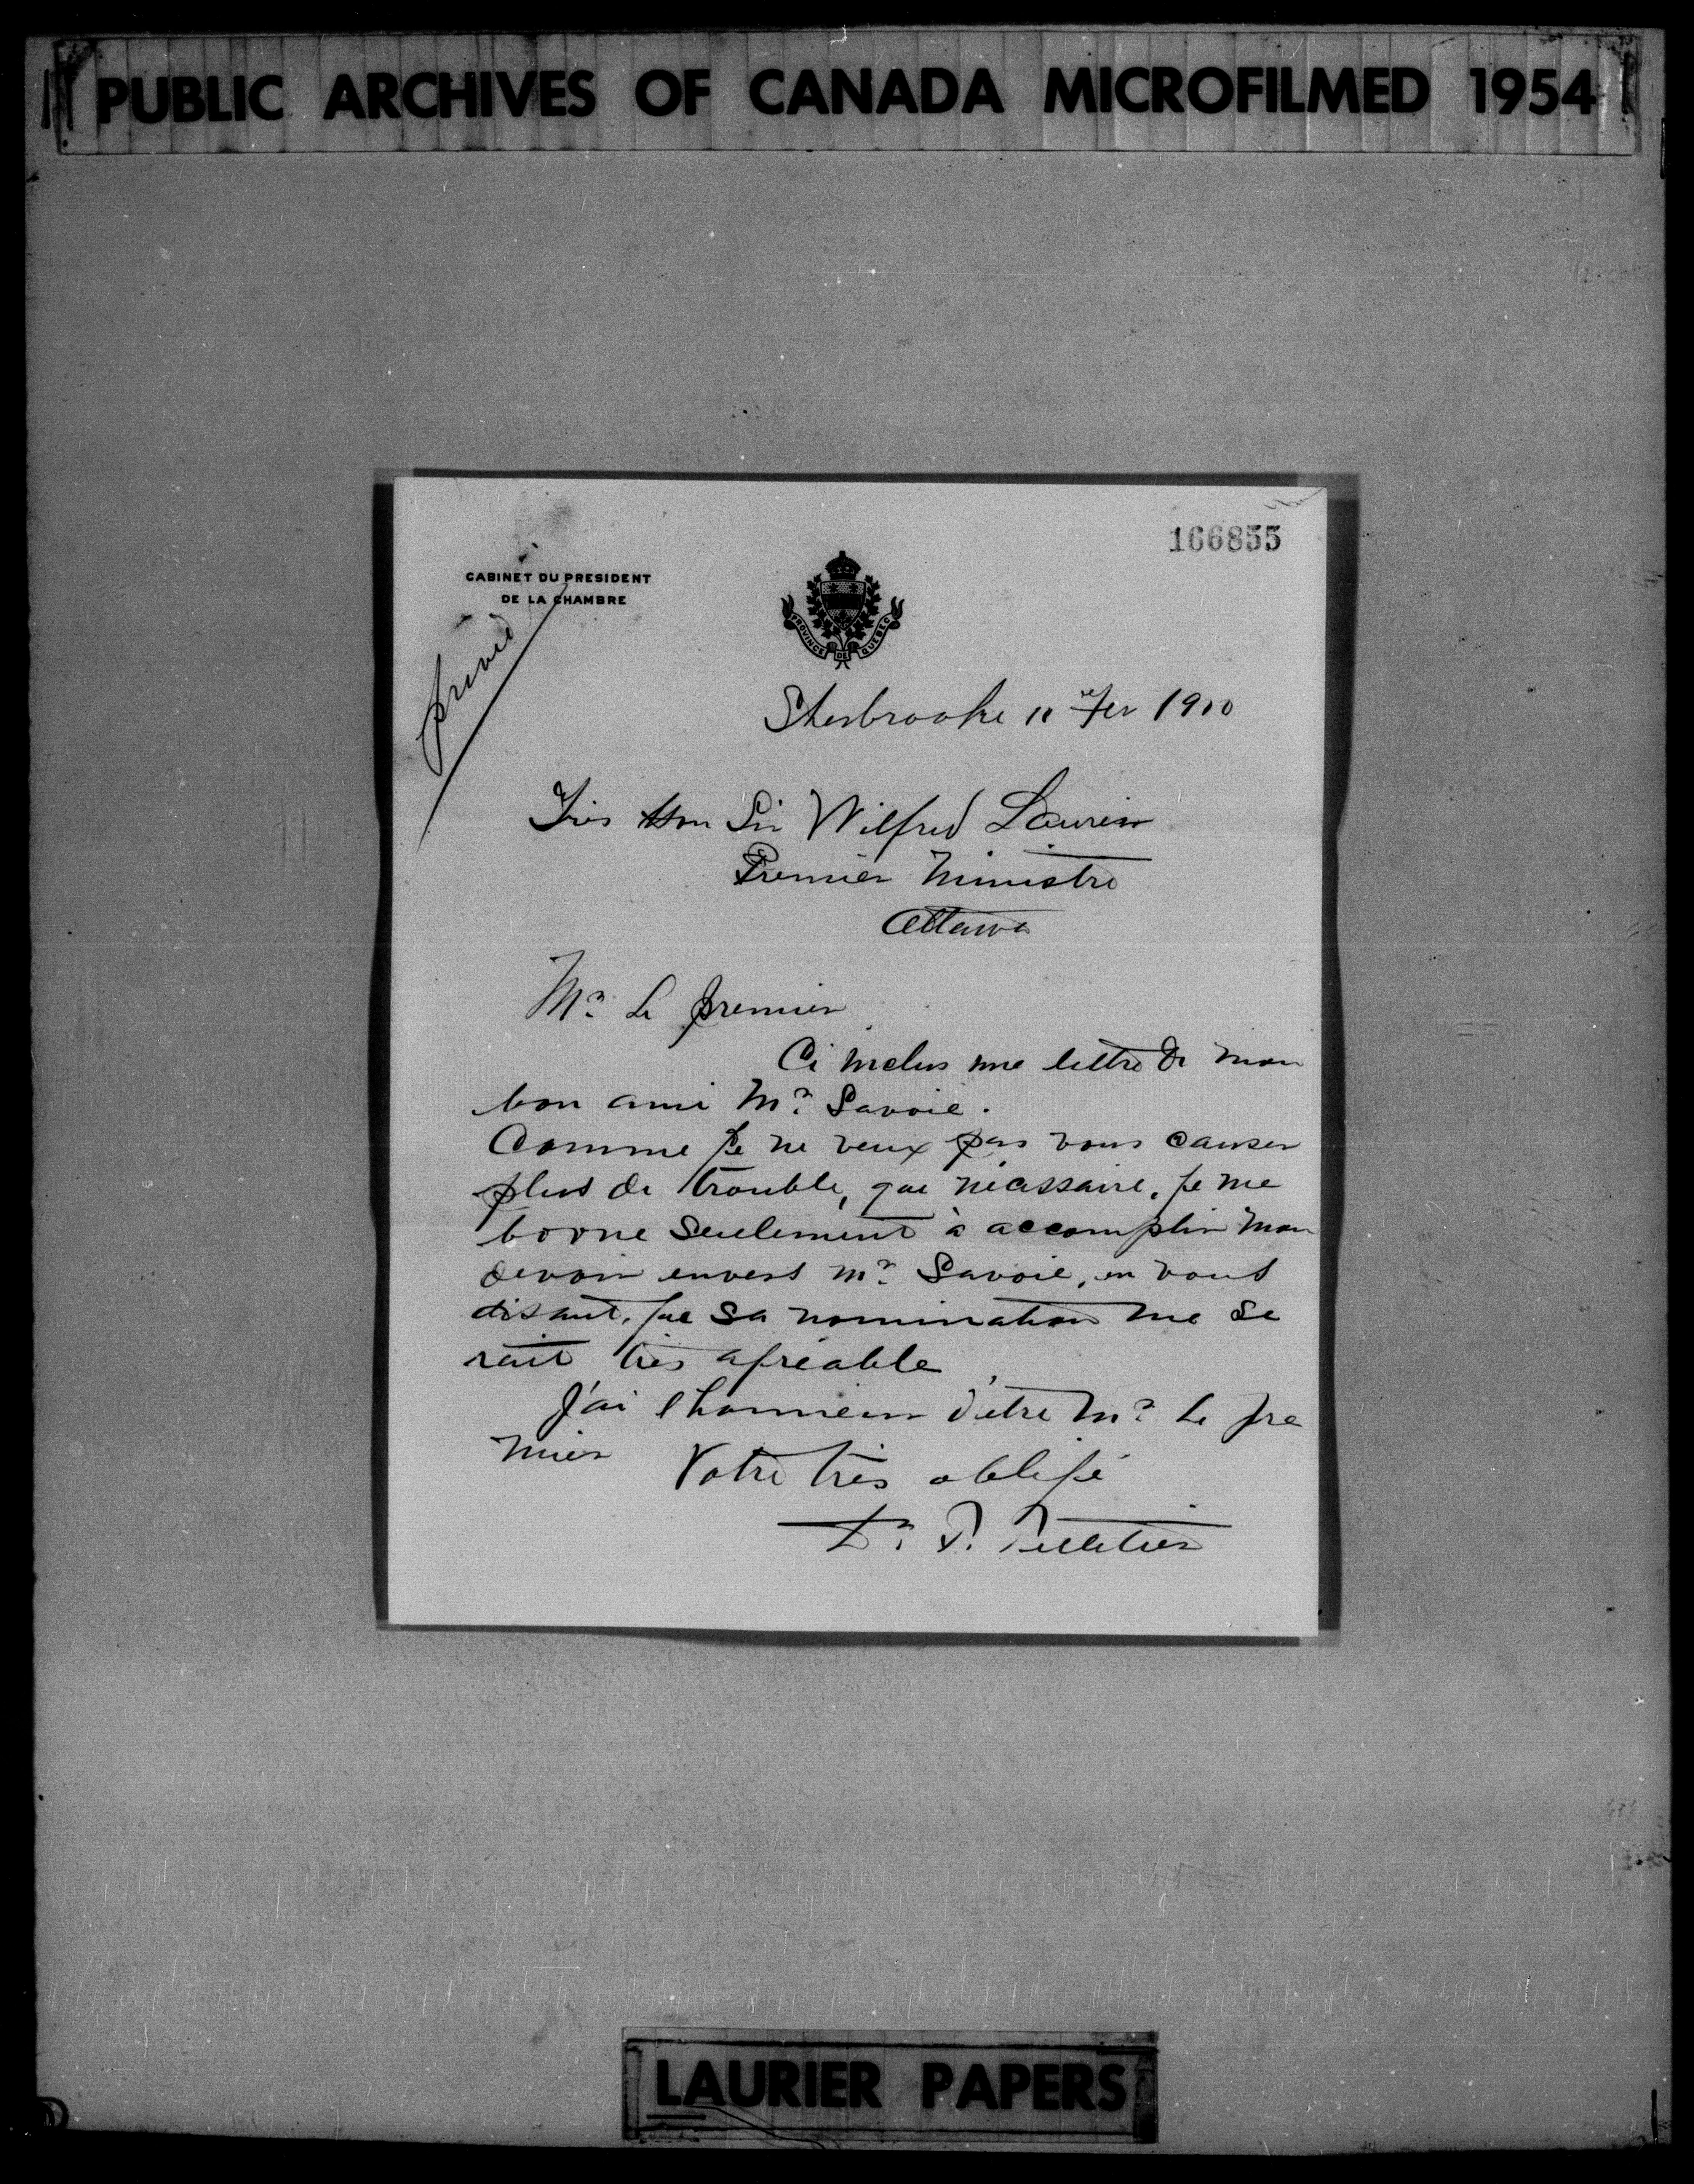 PUBLIC ARCHIVES OF CANADA MICROFILMED 1954
166855
CABINET DU PRESIDENT
DE LA CHAMBRE
PROVINCE DE QUEBEC
privée
Sherbrooke 11 Fev 1910
Très Hon Sir Wilfred Laurier
Premier Ministre
Ottawa
Mr. Le premier
Ci inclus une lettre de mon
bon ami Mr. Savoie.
Comme je ne veux pas vous causer
plus de trouble, que nécassaire, je me
borne seulement à accomplir mon
devoir envers Mr. Savoie, en vous
disant, que sa nomination me se
rait très agréable
J'ai l'honneur d'etre Mr. Le pre
mier
Votre très obligé
Dr. P. Pelletier
LAURIER PAPERS